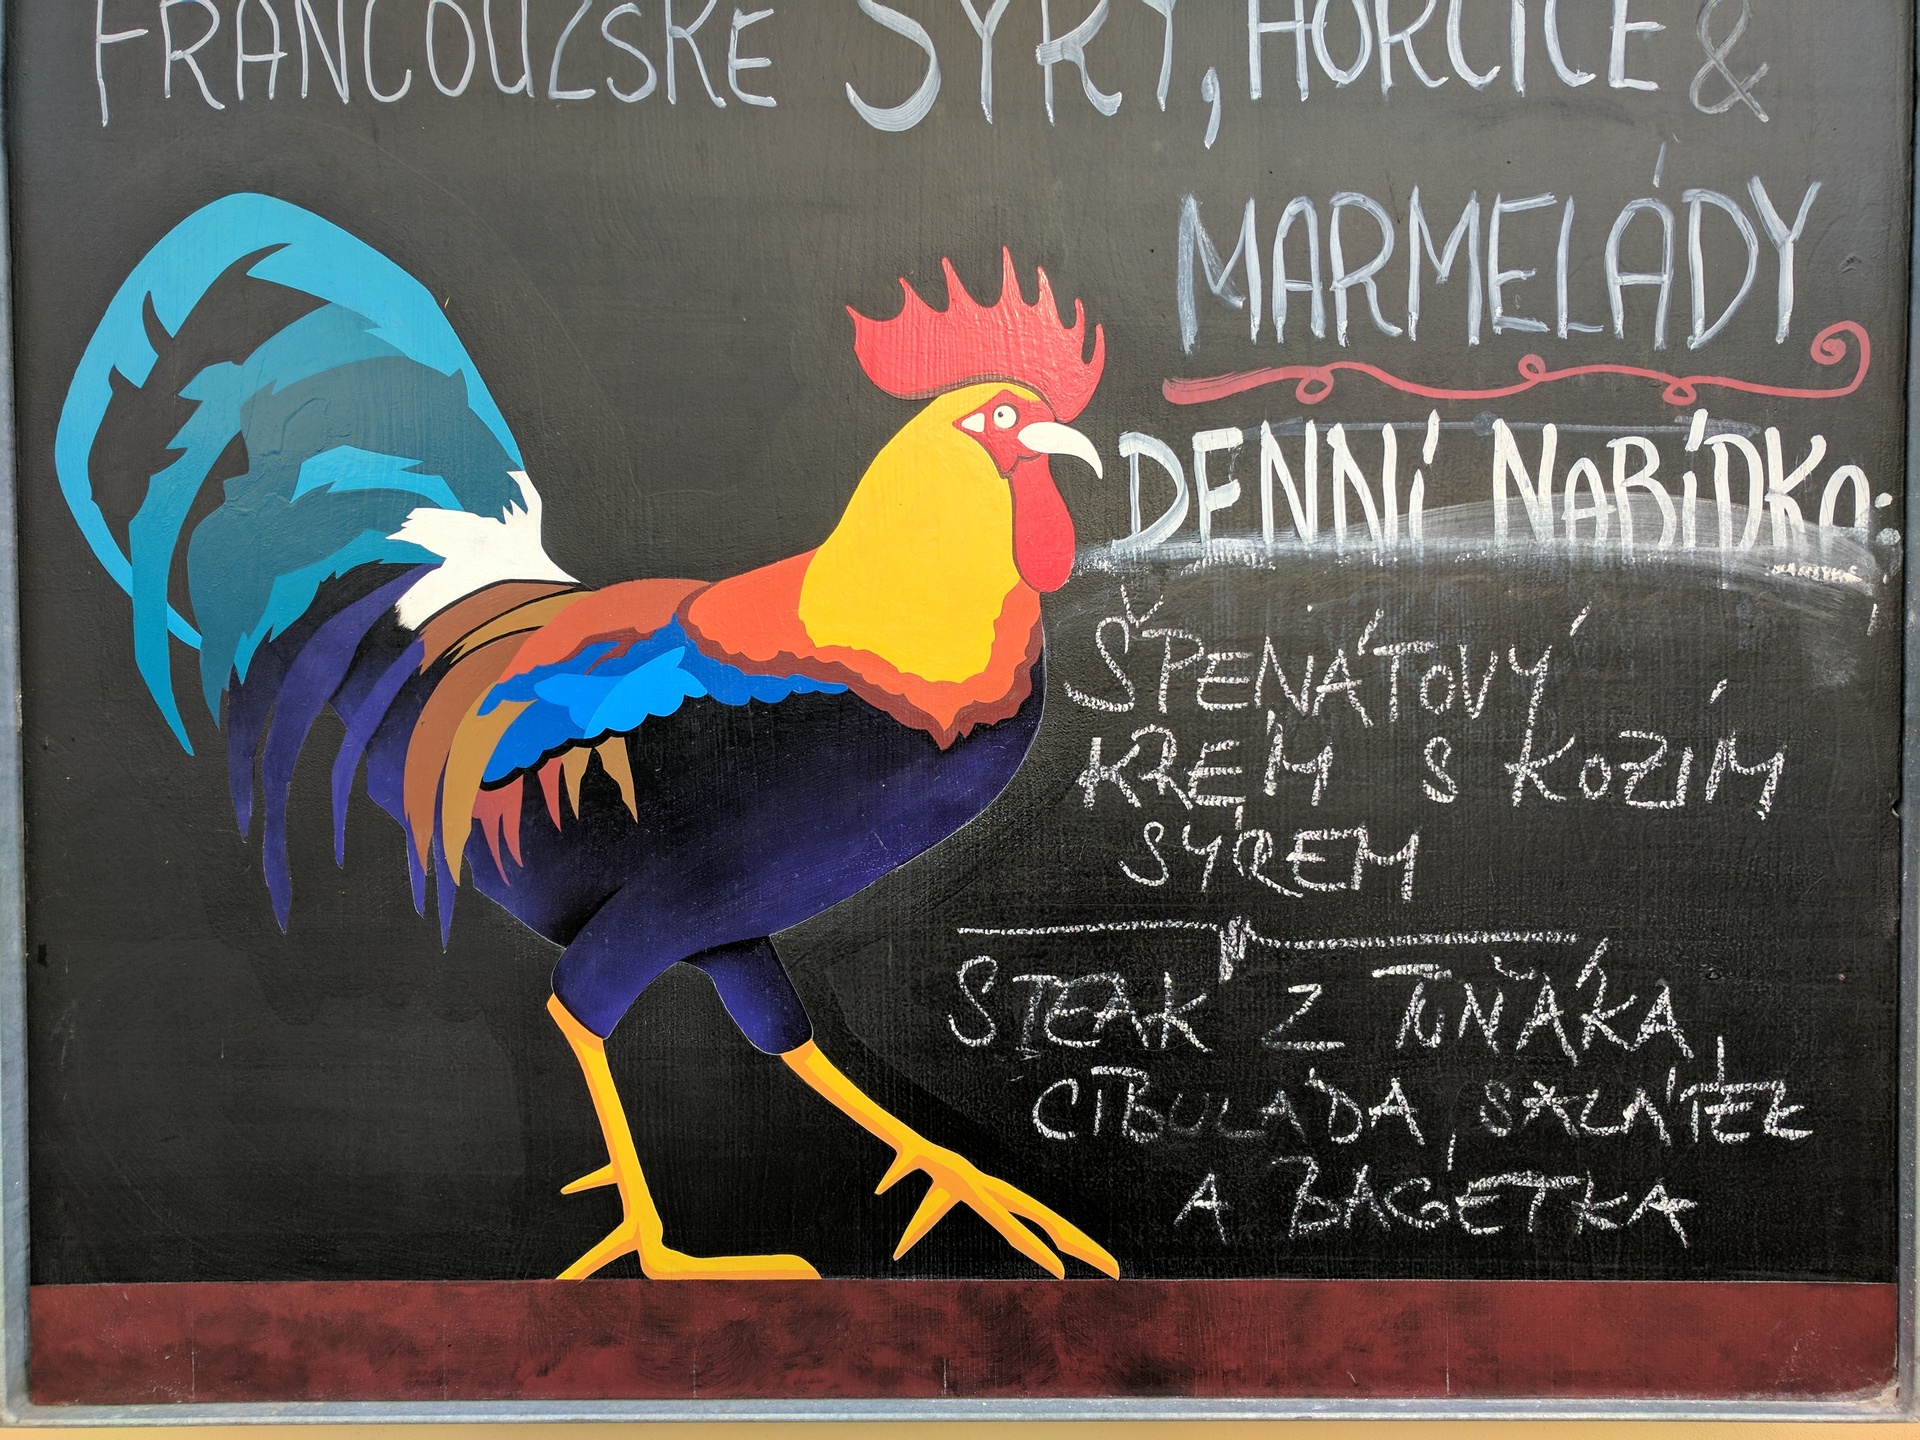 FRANCOUZSKÉ SÝRY, HOŘČICE &
MARMELÁDY
DENNÍ NABÍDKA:
ŠPENÁTOVÝ
KRÉM S KOZÍM
SÝREM
STEAK Z TUŇÁKA,
CIBULÁDA, SALÁTEK
A BAGETKA